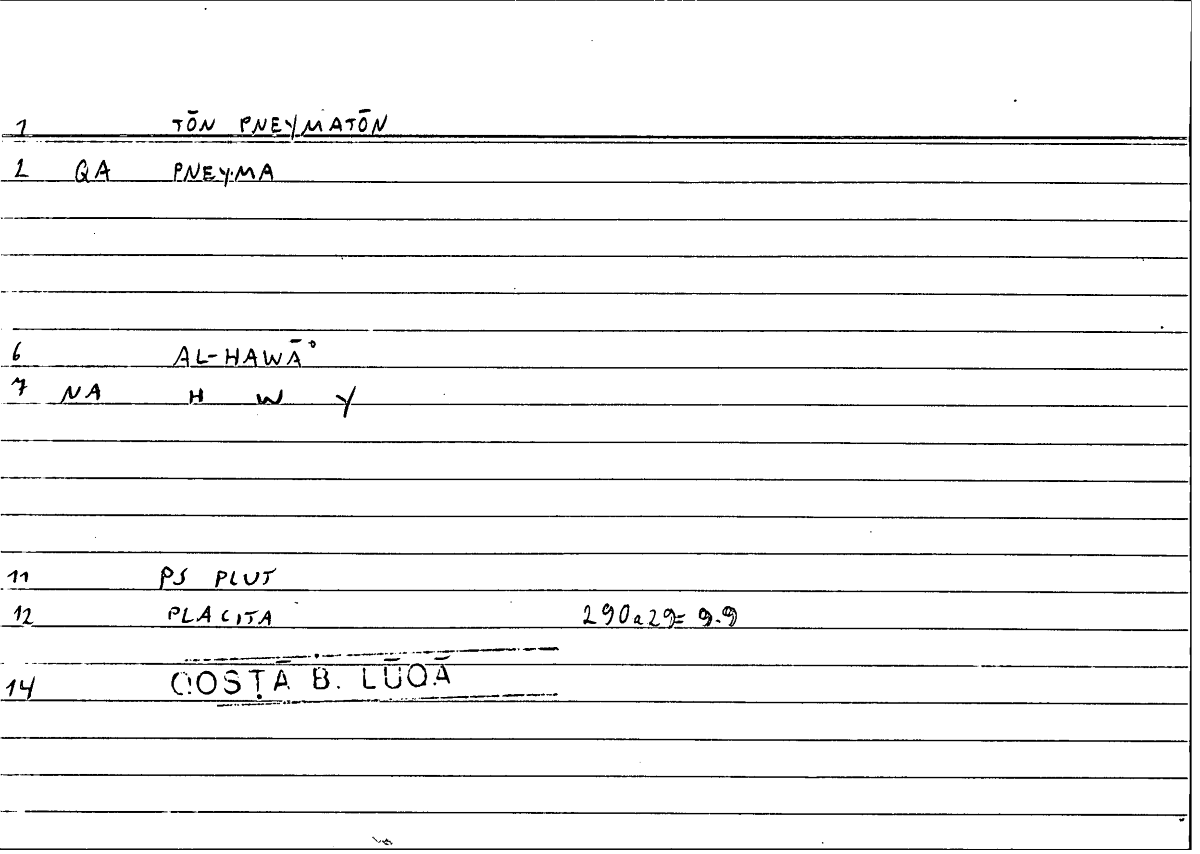 1 TŌN PNEYMATŌN
2 QA PNEYMA
6 AL-HAWĀʾ
7 NA H W Y
11 PS PLUT
12 PLACITA 290a29= 9.9
14 QOSṬĀ B. LŪQĀ